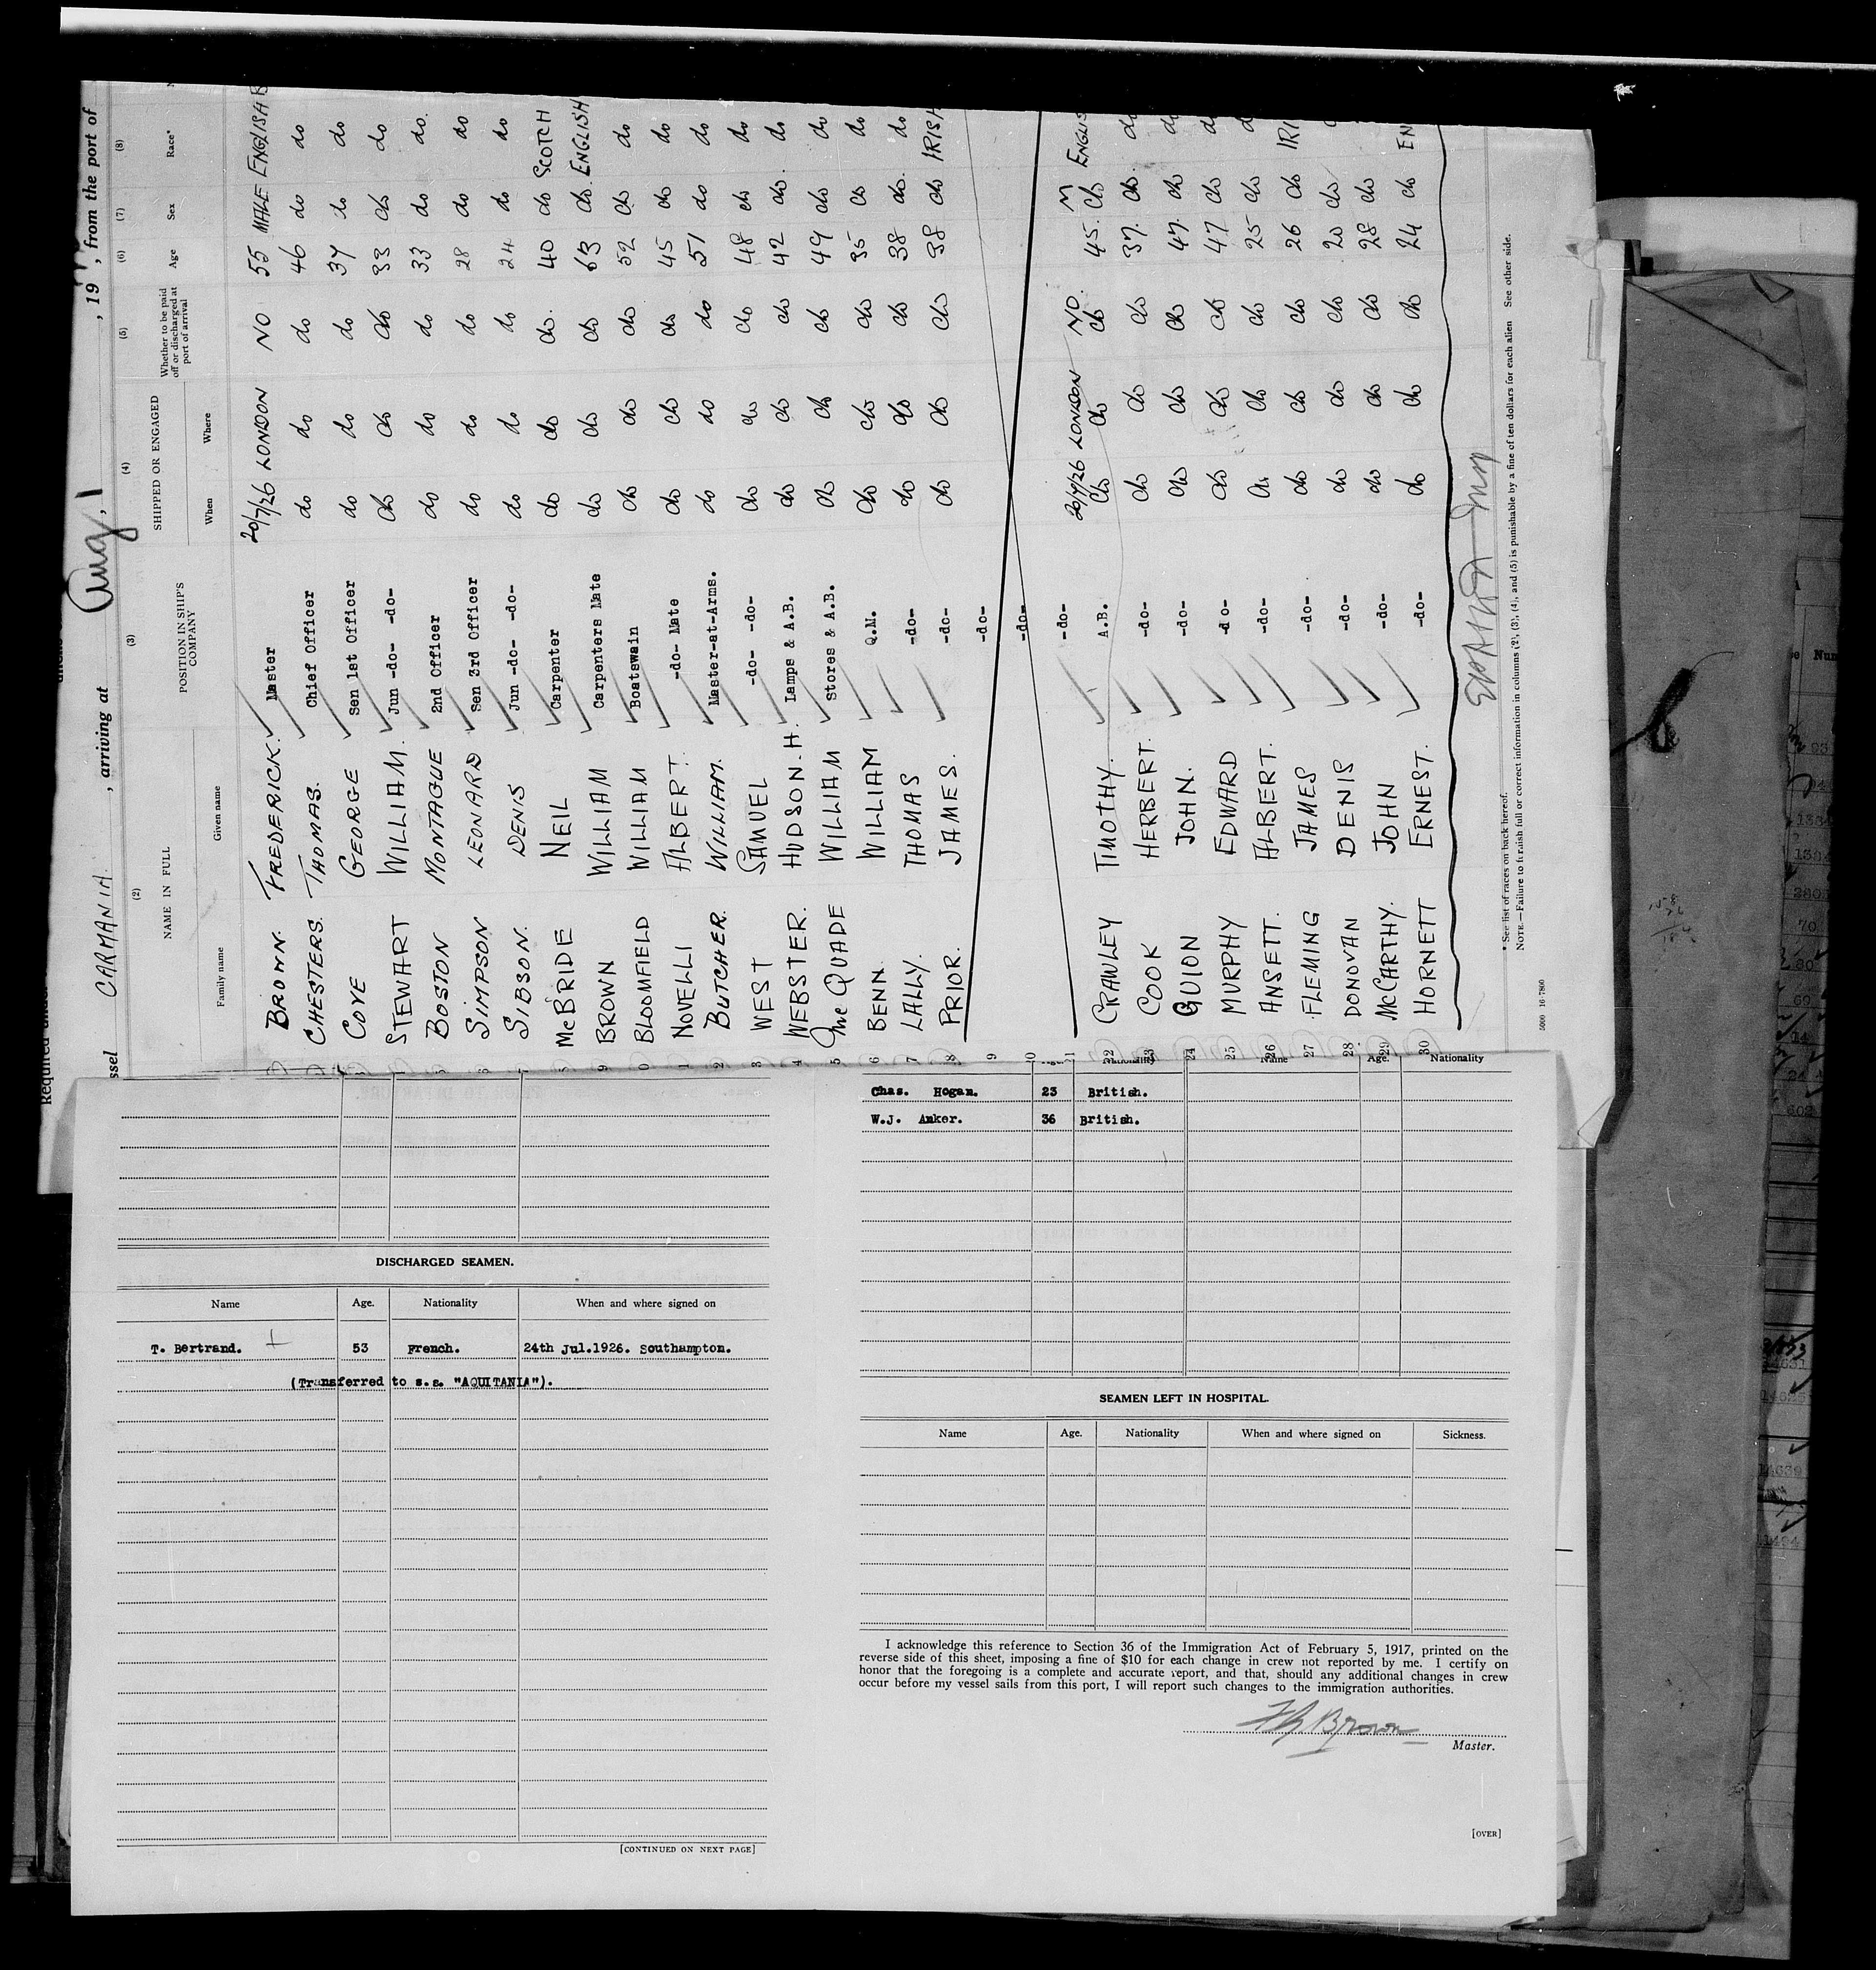 CARMANIA , arriving at Aug, 1 , 19 , from the port of
(2) (3) (4) (5) (6) (7) (8)
NAME IN FULL POSITION IN SHIP'S COMPANY SHIPPED OR ENGAGED Whether to be paid off or discharged at port of arrival Age Sex Race*
Family name Given name When Where
BROWN. FREDERICK. Master 20/7/26 LONDON NO 55 MALE ENGLISH
CHESTERS. THOMAS. Chief Officer do do do 46 do do
COVE GEORGE Sen 1st Officer do do do 37 do do
STEWART WILLIAM. Jun -do- -do- do do do 33 do do
BOSTON MONTAGUE 2nd Officer do do do 33 do do.
SIMPSON LEONARD Sen 3rd Officer do do do 28 do do
SIBSON. DENIS Jun -do- -do- do do do 24 do do
McBRIDE NEIL Carpenter do do do. 40 do SCOTCH
BROWN WILLIAM Carpenters Mate do do do 63 do. ENGLISH
BLOOMFIELD WILLIAM Boatswain do do do 52 do do
NOVELLI ALBERT. -do- Mate do do do 45 do do
BUTCHER. WILLIAM. Master-at-Arms. do do do 51 do do
WEST SAMUEL -do- -do- do do do 48 do do
WEBSTER. HUDSON.H. Lamps & A.B. do do do 42 do. do
Mc QUADE WILLIAM Stores & A.B. do do do 49 do do
BENN. WILLIAM Q.M. do do do 35 do do
LALLY. THOMAS -do- do do do 38 do. do
PRIOR. JAMES. -do- do do do 38 do IRISH
-do-
-do-
-do- 20/7/26 LONDON NO. M
CRAWLEY TIMOTHY. A.B. do do do 45. do ENGLIS
COOK HERBERT. -do- do do do 37. do. do
GUION JOHN. -do- do do do 47. do do
MURPHY EDWARD -do- do do do 47 do do
ANSETT. ALBERT. -do- do do do 25 do do
FLEMING JAMES -do- do do do 26 do IRI
DONOVAN DENIS -do- do do do 20 do
McCARTHY. JOHN -do- do do do 28 do
HORNETT ERNEST. -do- do do do 24 do EN
* See list of races on back hereof.
NOTE.—Failure to furnish full or correct information in columns (2), (3), (4), and (5) is punishable by a fine of ten dollars for each alien See other side.
DISCHARGED SEAMEN.
Name Age. Nationality When and where signed on
T. Bertrand. 53 French. 24th Jul.1926. Southampton.
(Transferred to s.s. "AQUITANIA").
[CONTINUED ON NEXT PAGE]
Nationality Name Age. Nationality
Chas. Hogan. 23 British.
W.J. Anker. 36 British.
SEAMEN LEFT IN HOSPITAL.
Name Age. Nationality When and where signed on Sickness.
I acknowledge this reference to Section 36 of the Immigration Act of February 5, 1917, printed on the
reverse side of this sheet, imposing a fine of $10 for each change in crew not reported by me. I certify on
honor that the foregoing is a complete and accurate report, and that, should any additional changes in crew
occur before my vessel sails from this port, I will report such changes to the immigration authorities.
Brown
Master.
[OVER]